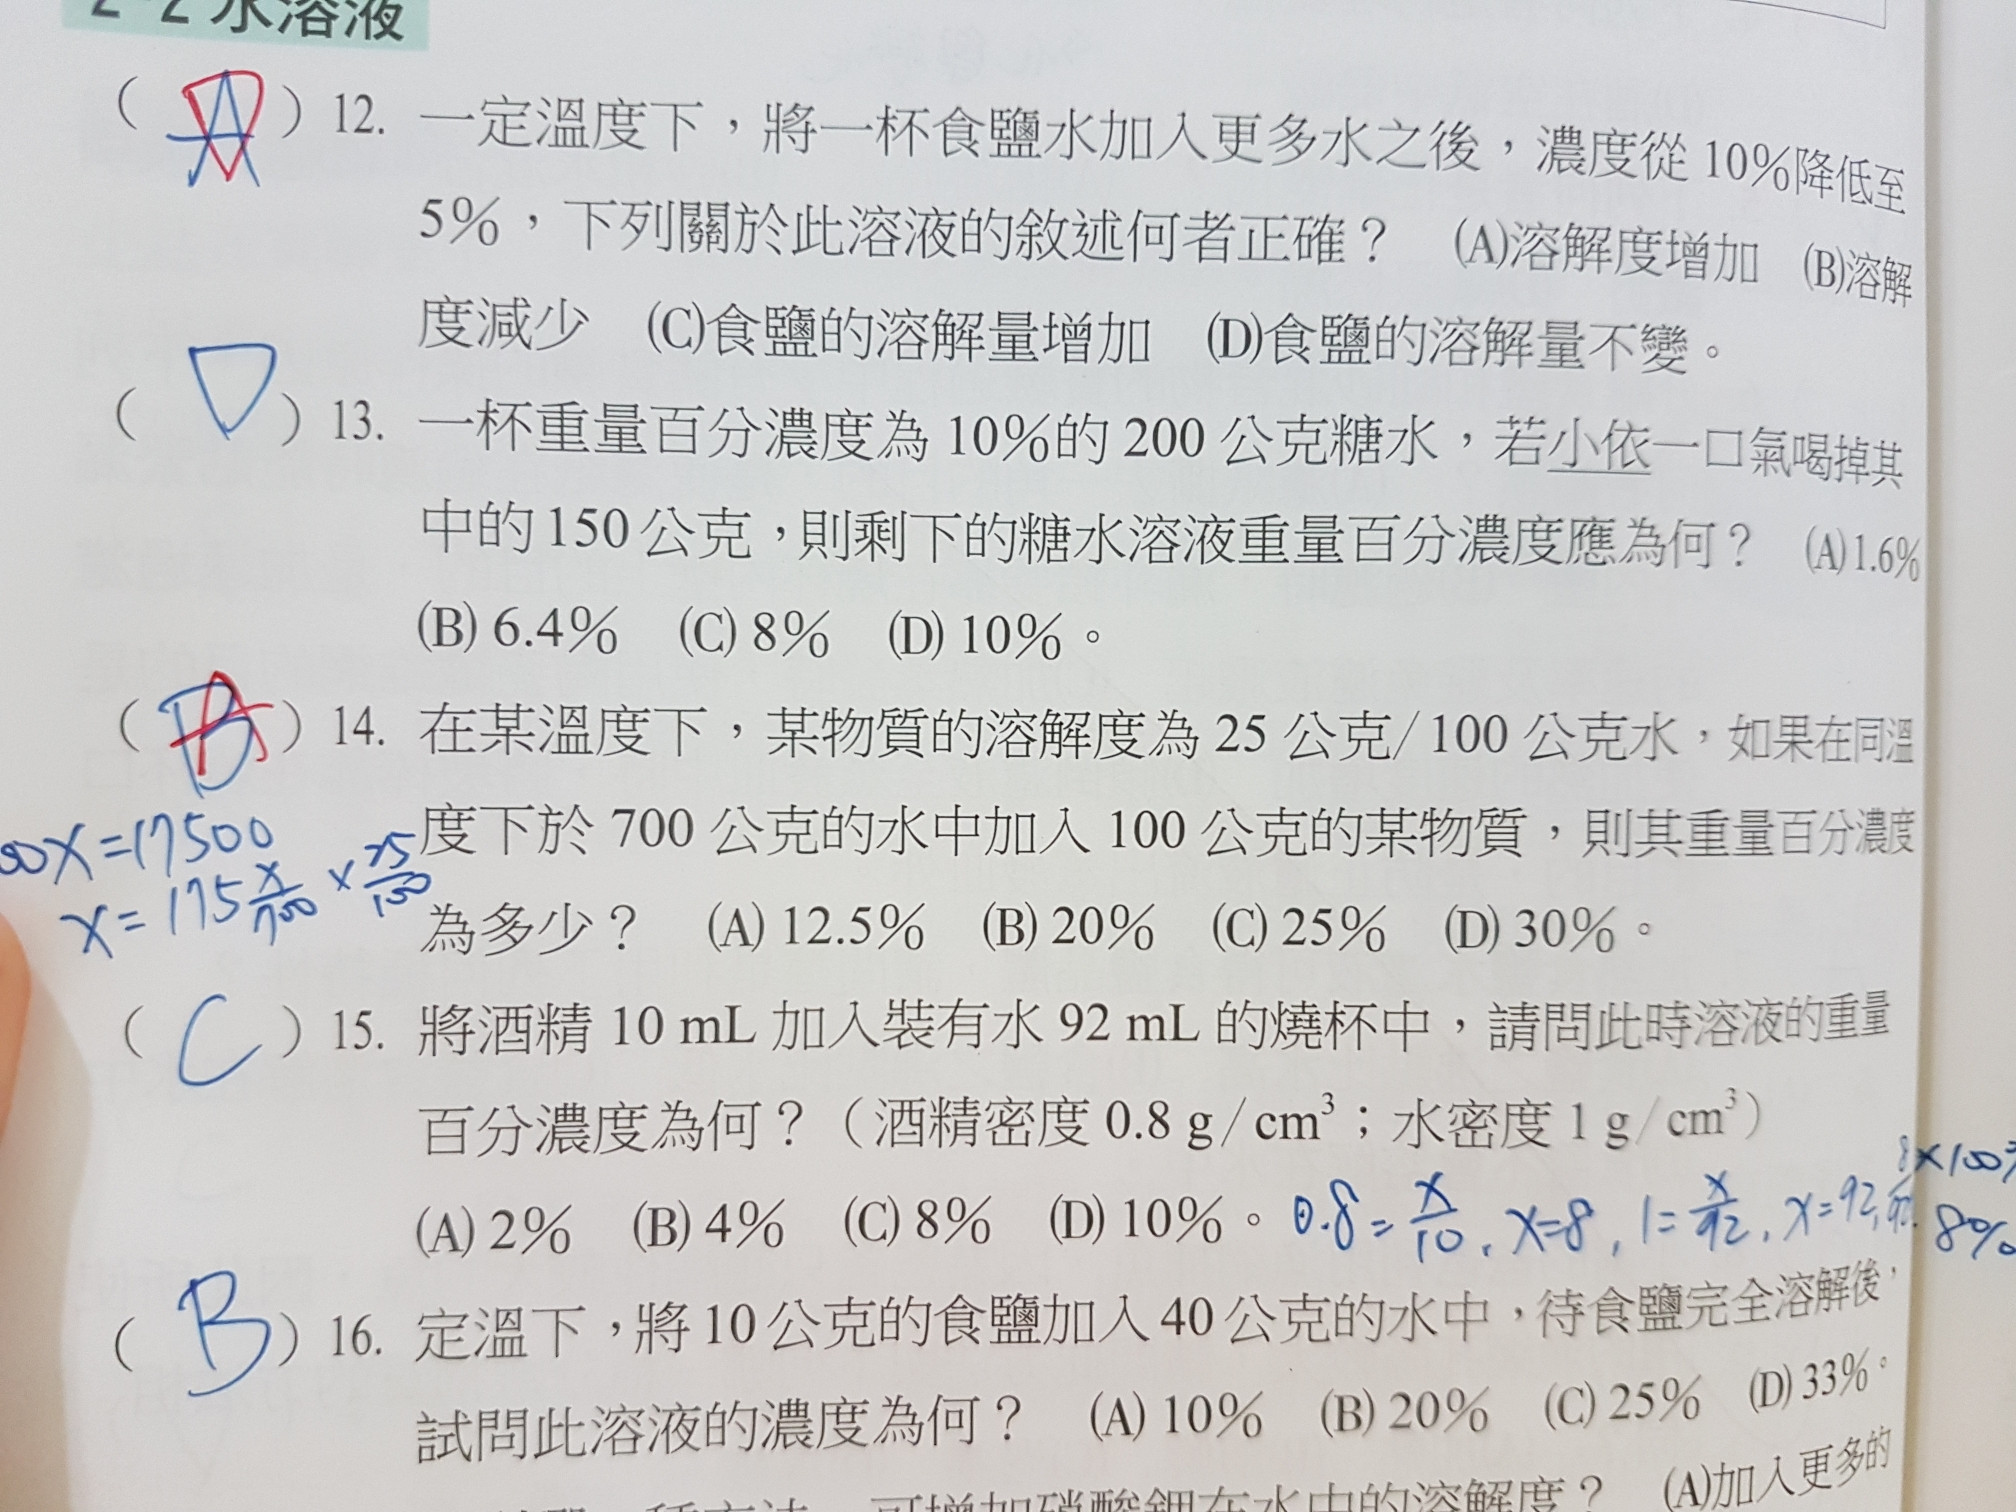 2-2 水溶液
( D ) 12. 一定溫度下，將一杯食鹽水加入更多水之後，濃度從 10%降低至
5%，下列關於此溶液的敘述何者正確？ (A)溶解度增加 (B)溶解
度減少 (C)食鹽的溶解量增加 (D)食鹽的溶解量不變。
( D ) 13. 一杯重量百分濃度為 10%的 200 公克糖水，若小依一口氣喝掉其
中的 150 公克，則剩下的糖水溶液重量百分濃度應為何？ (A) 1.6%
(B) 6.4% (C) 8% (D) 10%。
( A ) 14. 在某溫度下，某物質的溶解度為 25 公克/ 100 公克水，如果在同溫
度下於 700 公克的水中加入 100 公克的某物質，則其重量百分濃度
為多少？ (A) 12.5% (B) 20% (C) 25% (D) 30%。
00X=17500
X=175 X/700 × 25/100
( C ) 15. 將酒精 10 mL 加入裝有水 92 mL 的燒杯中，請問此時溶液的重量
百分濃度為何？（酒精密度 0.8 g/cm³；水密度 1 g/cm³）
(A) 2% (B) 4% (C) 8% (D) 10%。 0.8=x/10, x=8, 1=x/92, x=92, 8×100% 8%
( B ) 16. 定溫下，將 10 公克的食鹽加入 40 公克的水中，待食鹽完全溶解後，
試問此溶液的濃度為何？ (A) 10% (B) 20% (C) 25% (D) 33%。
一種方法，可增加硝酸鉀在水中的溶解度？ (A)加入更多的